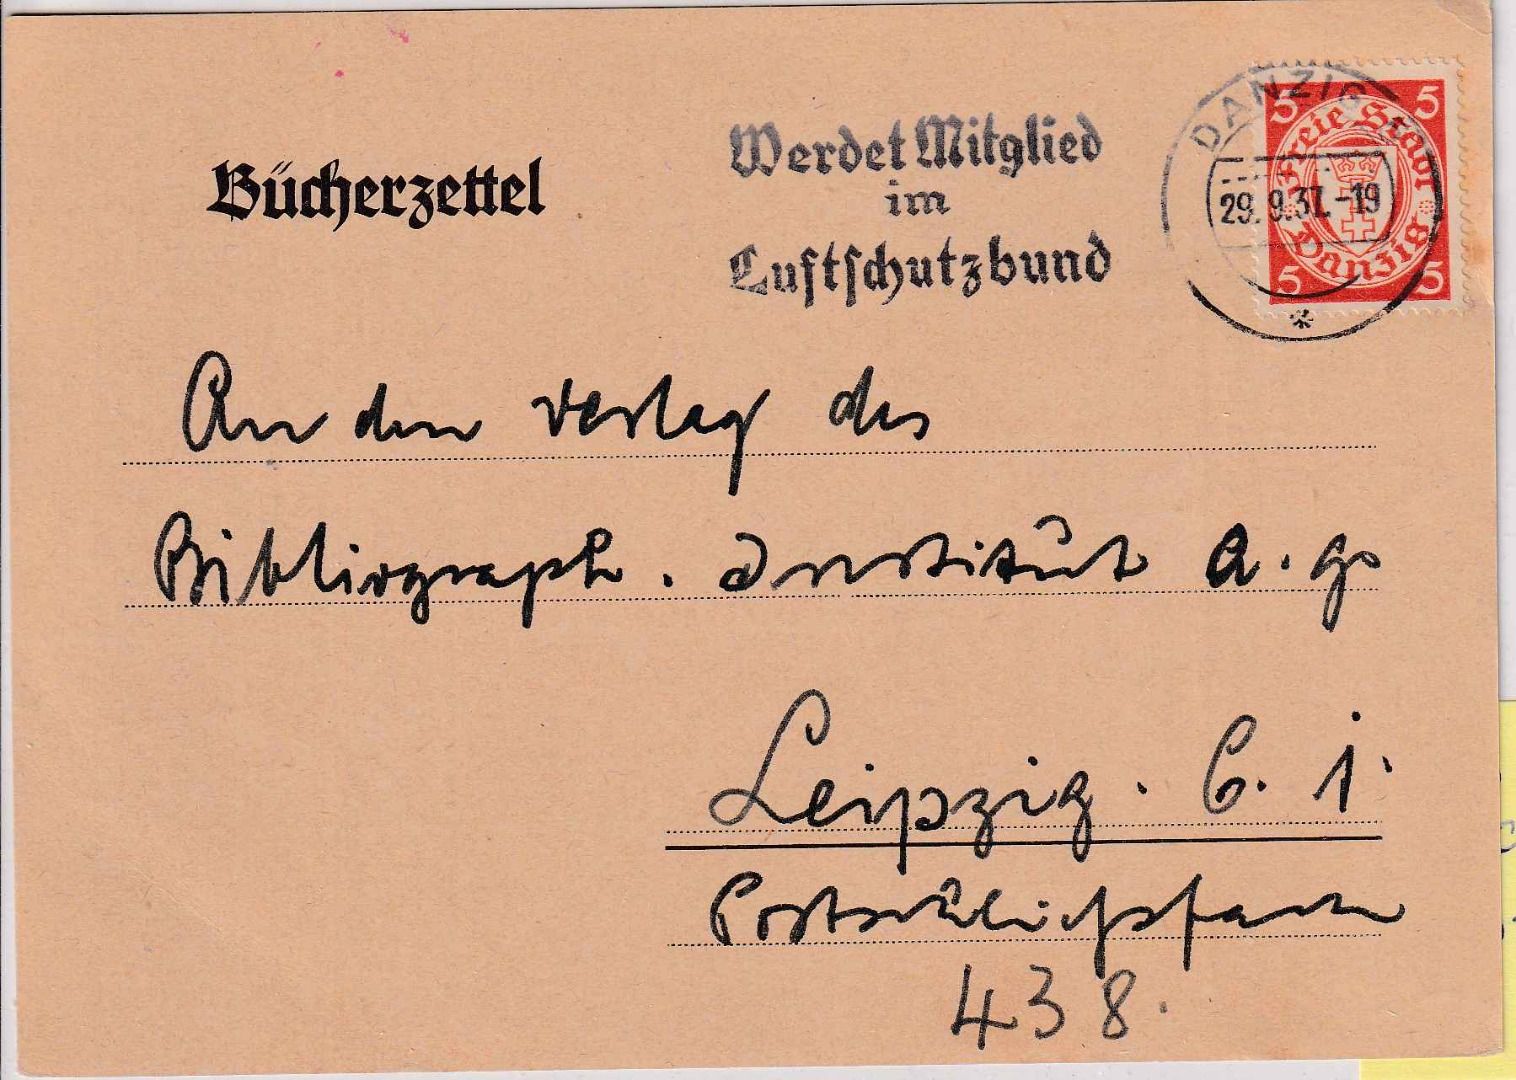 Bücherzettel
Werdet Mitglied
im
Luftschutzbund
DANZIG
29.9.37.-19
5 5
Freie Stadt
Danzig
5 5
An den Verlag des
Bibliograph. Institut A.G.
Leipzig. C. 1.
Postschließfach
438.